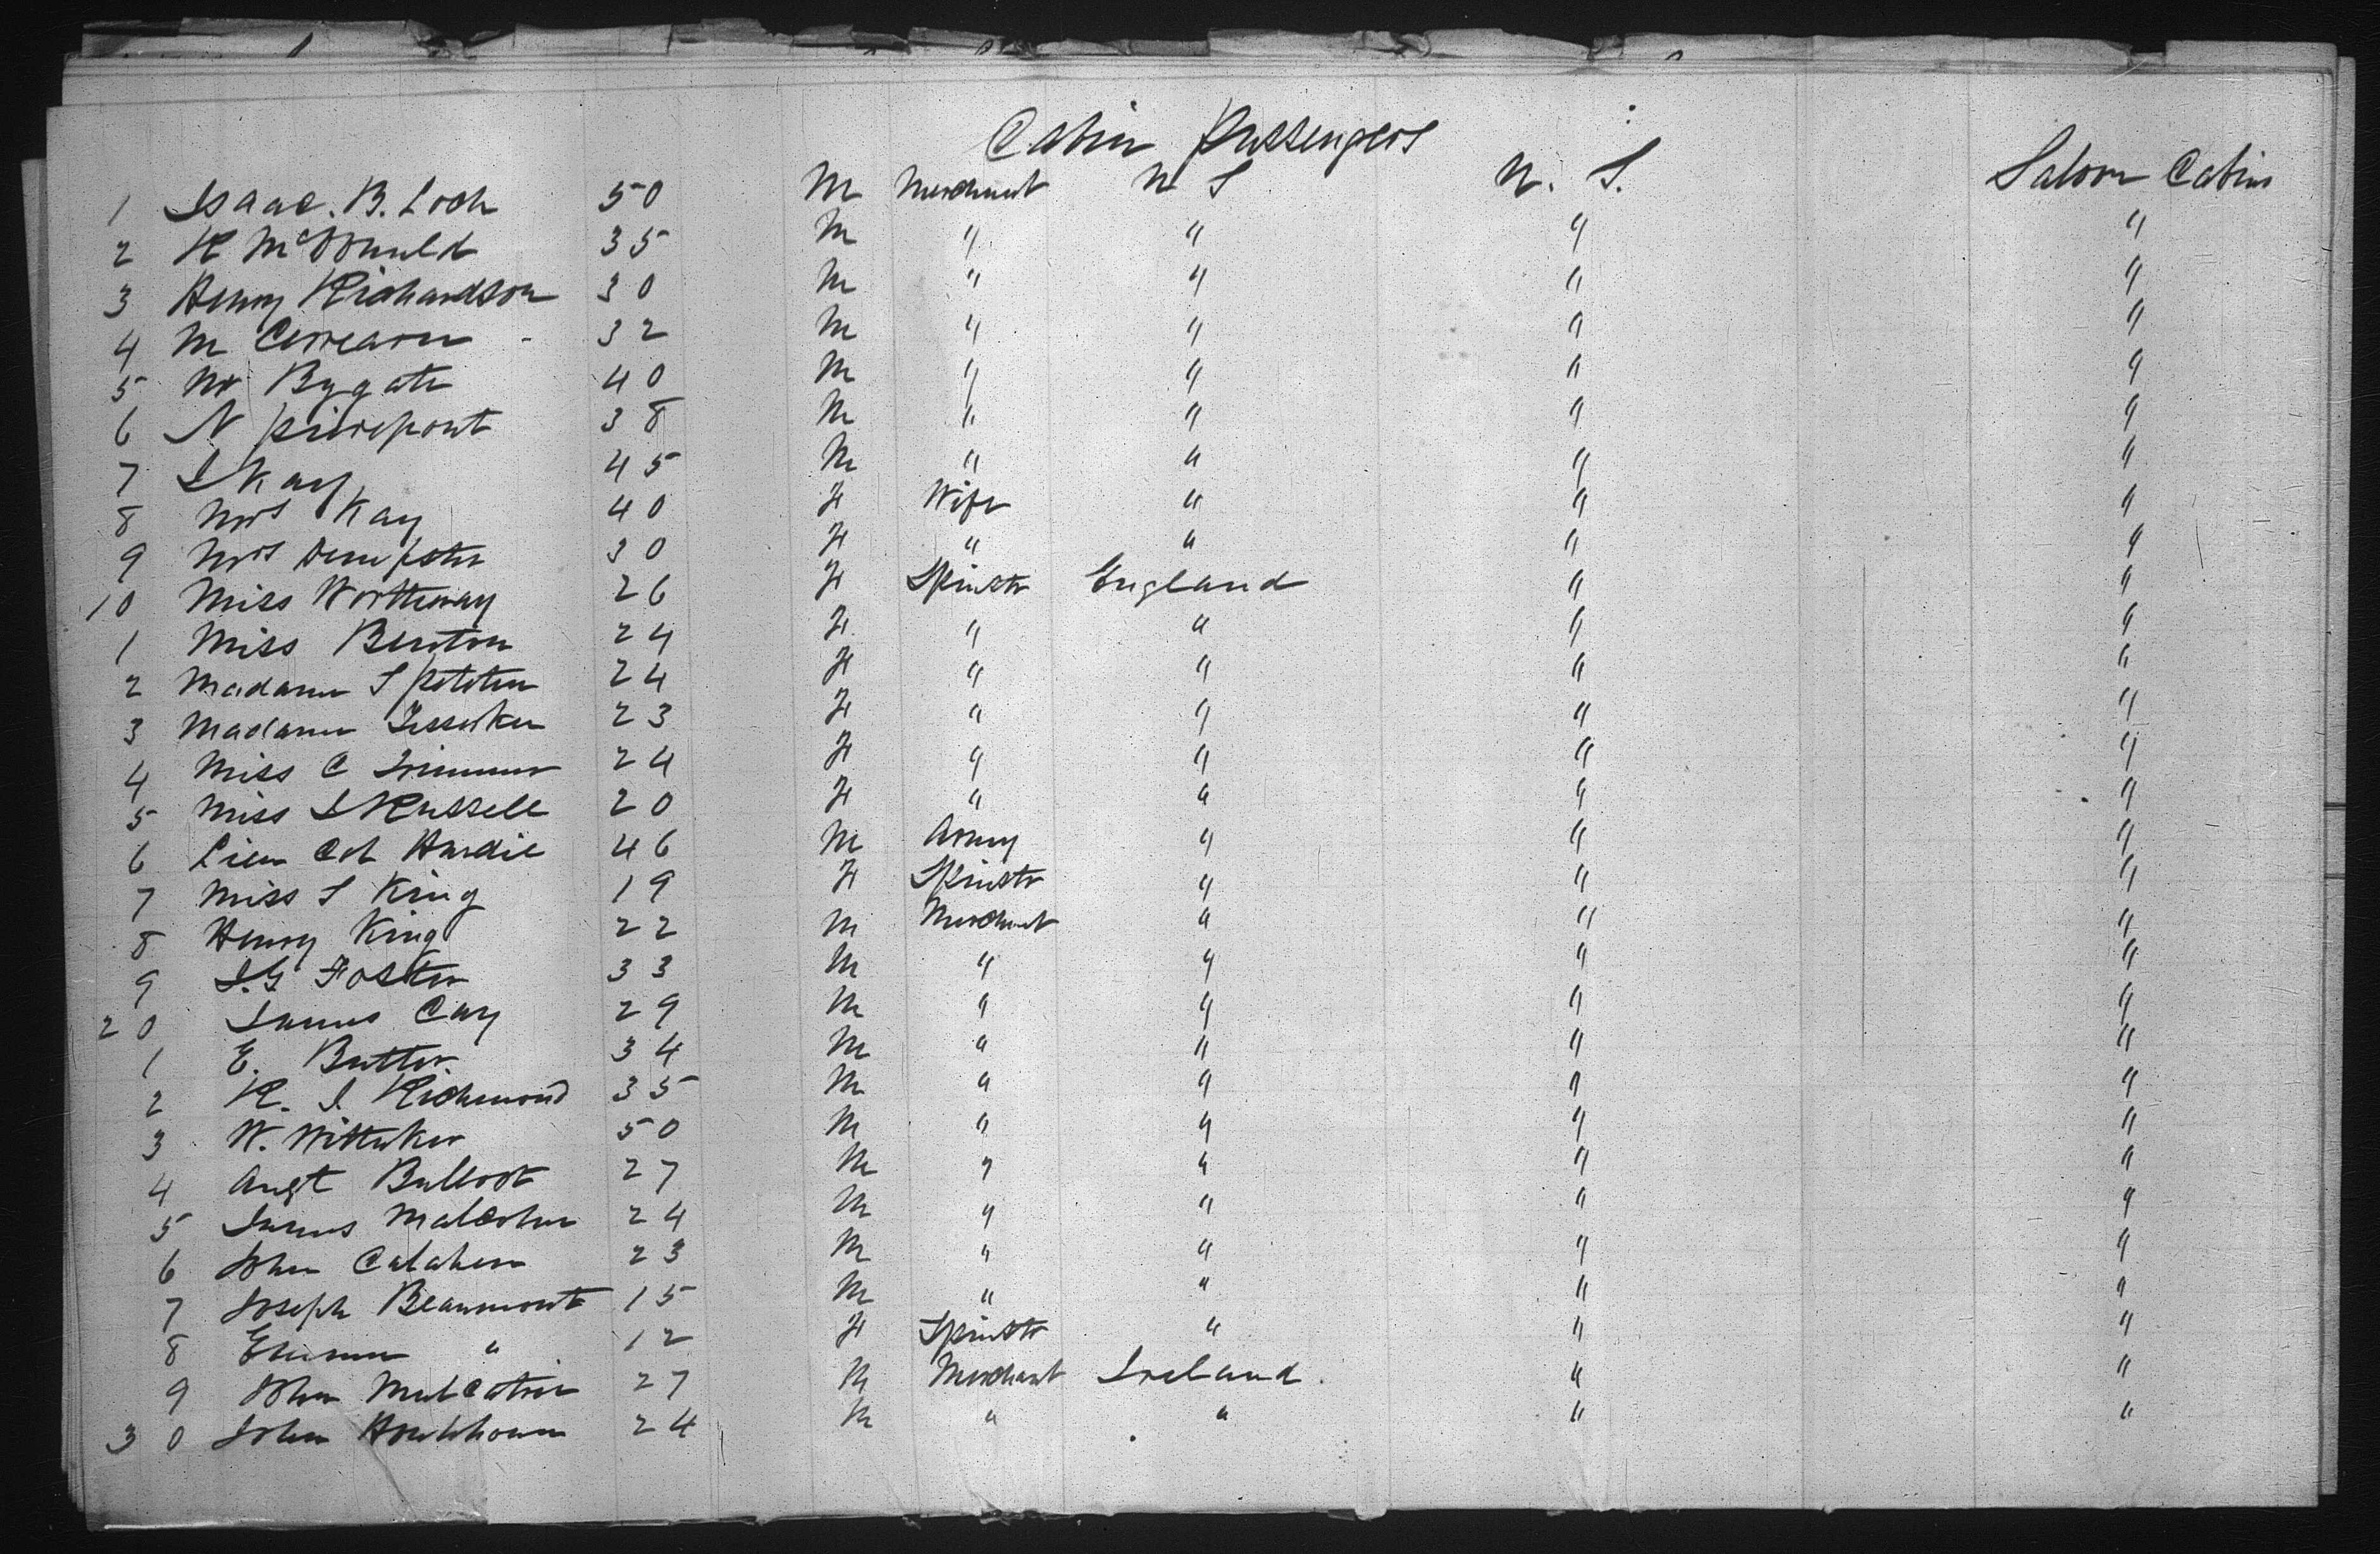 Cabin Passengers
1 Isaac. B. Loch 50 M Merchant U S U. S. Saloon Cabin
2 R McDonald 35 M " " " "
3 Henry Richardson 30 M " " " "
4 M 32 M " " " "
5 Mr Bygate 40 M " " " "
6 N Pierepont 38 M " " " "
7 J Kay 45 M " " " "
8 Mrs Kay 40 F Wife " " "
9 Mrs Dempster 30 F " " " "
10 Miss Wortheway 26 F Spinstr England " "
1 Miss Benton 24 F " " " "
2 Madame S 24 F " " " "
3 Madame 23 F " " " "
4 Miss C Trimmer 24 F " " " "
5 Miss J Russell 20 F " " " "
6 Lieu Col Hardie 46 M Army " " "
7 Miss S King 19 F Spinstr " " "
8 Henry King 22 M Merchant " " "
9 J.G Foster 33 M " " " "
20 James Cay 29 M " " " "
1 E. Butter. 34 M " " " "
2 R. J. Richmond 35 M " " " "
3 W. Wittaker 50 M " " " "
4 Augt Bulloot 27 M " " " "
5 James Malcolm 24 M " " " "
6 John Calahan 23 M " " " "
7 Joseph Beaumont 15 M " " " "
8 Emma " 12 F Spinstr " " "
9 John 27 M Merchant Ireland. " "
30 John 24 M " " " "